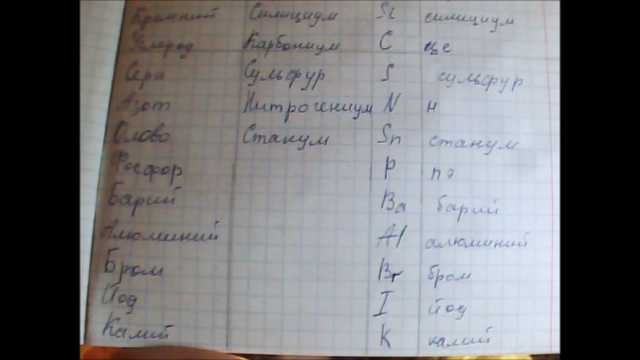 Кремний Силициум Si силициум
Углерод Карбониум C це
Сера Сульфур S сульфур
Азот Нитрогениум N н
Олово Станум Sn станум
Фосфор P пэ
Барий Ba барий
Алюминий Al алюминий
Бром Br бром
Йод I йод
Калий K калий